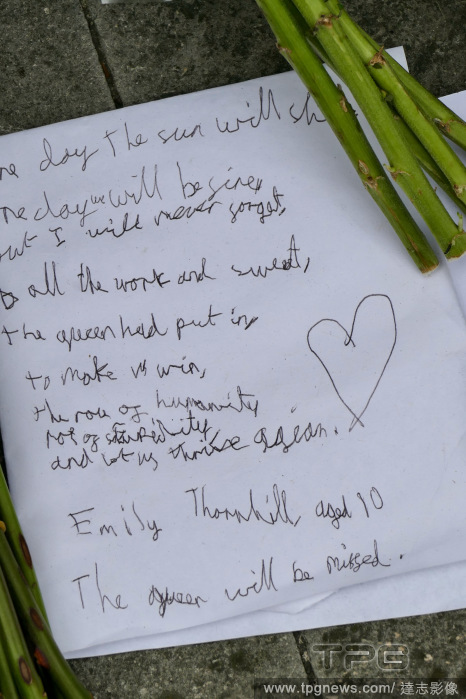 ne day the sun will sh
ne day we will be sine,
but I will never forget,
to all the work and sweat,
the queen had put in,
to make us win,
the row of humanity,
not of stupidity,
and let us thrive again.
Emily Thornhill, aged 10
The queen will be missed.
TPG
www.tpgnews.com/達志影像